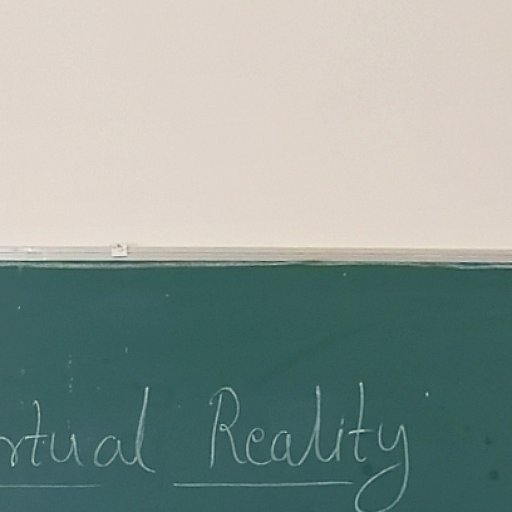 rtual Reality